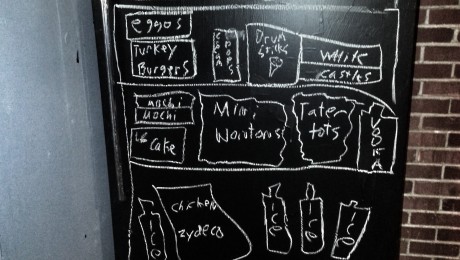 eggos
Turkey
Burgers
Drum
Sticks
White
castles
Mochi
Mochi
Cake
Mini
Wontons
Tater
tots
VODKA
chicken
zydeco
ice
ice
ice
ice